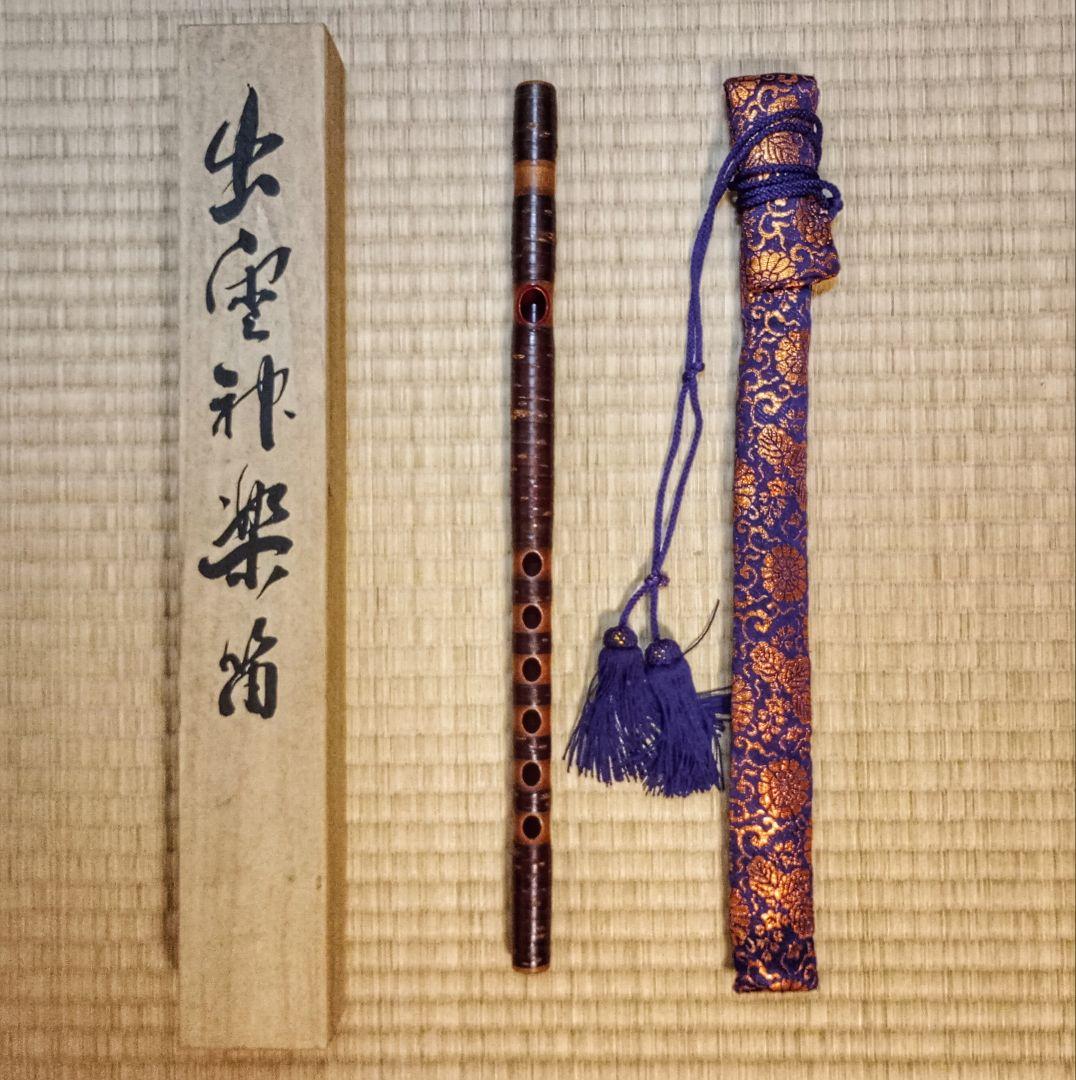 出雲神楽笛